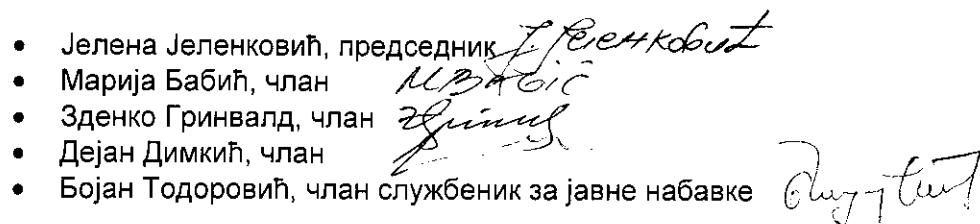 • Јелена Јеленковић, председник Ј Јеленковић
• Марија Бабић, члан MBABIĆ
• Зденко Гринвалд, члан
• Дејан Димкић, члан
• Бојан Тодоровић, члан службеник за јавне набавке